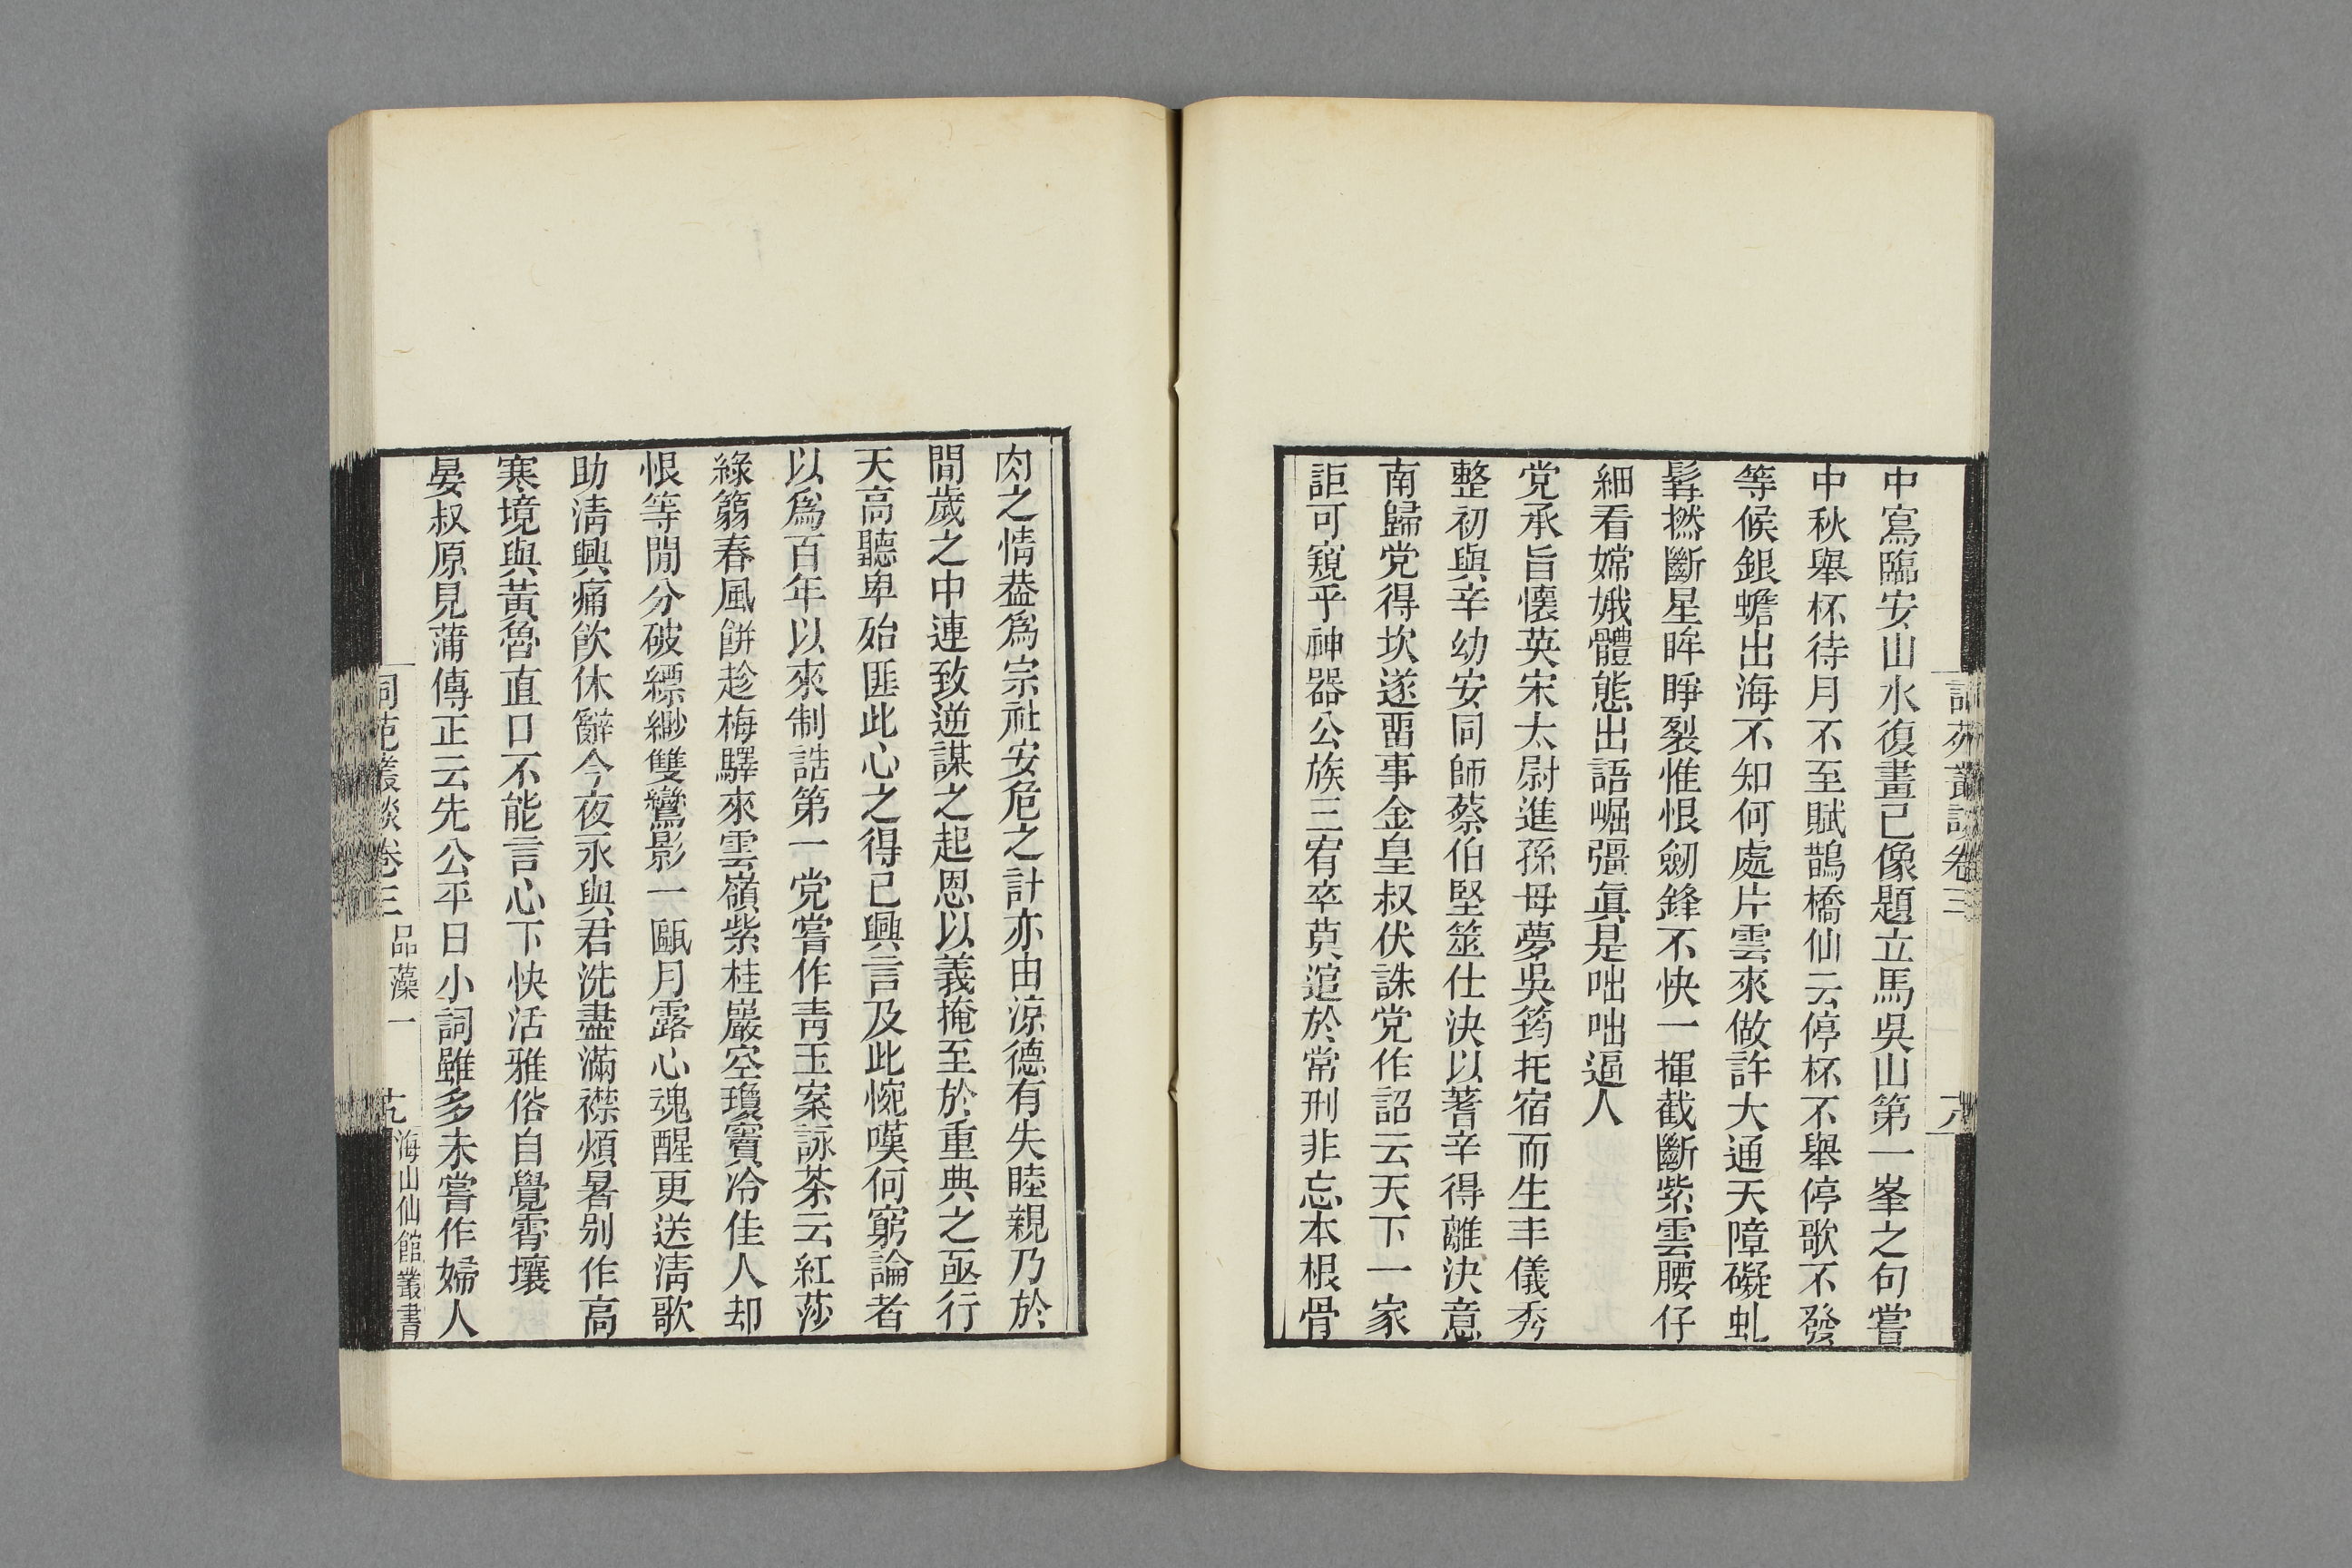 中寫臨安山水復畫己像題立馬吳山第一峯之句嘗
中秋舉杯待月不至賦鵲橋仙云停杯不舉停歌不發
等候銀蟾出海不知何處片雲來做許大通天障礙虬
髯撚斷星眸睜裂惟恨劒鋒不快一揮截斷紫雲腰仔
細看嫦娥體態出語崛彊眞是咄咄逼人
党承旨懷英宋太尉進孫母夢吳筠托宿而生丰儀秀
整初與辛幼安同師蔡伯堅筮仕決以蓍辛得離決意
南歸党得坎遂畱事金皇叔伏誅党作詔云天下一家
詎可窺乎神器公族三宥卒莫逭於常刑非忘本根骨
肉之情葢爲宗社安危之計亦由涼德有失睦親乃於
間歲之中連致逆謀之起恩以義掩至於重典之亟行
天高聽卑始匪此心之得已興言及此惋嘆何窮論者
以爲百年以來制誥第一党嘗作靑玉案詠茶云紅莎
綠篛春風餅趁梅驛來雲嶺紫桂巖空瓊竇冷佳人却
恨等閒分破縹緲雙鸞影一甌月露心魂醒更送淸歌
助淸興痛飮休辭今夜永與君洗盡滿襟煩暑別作高
寒境與黃魯直口不能言心下快活雅俗自覺霄壤
晏叔原見蒲傳正云先公平日小詞雖多未嘗作婦人
詞苑叢談卷三 品藻一 十九 海山仙館叢書